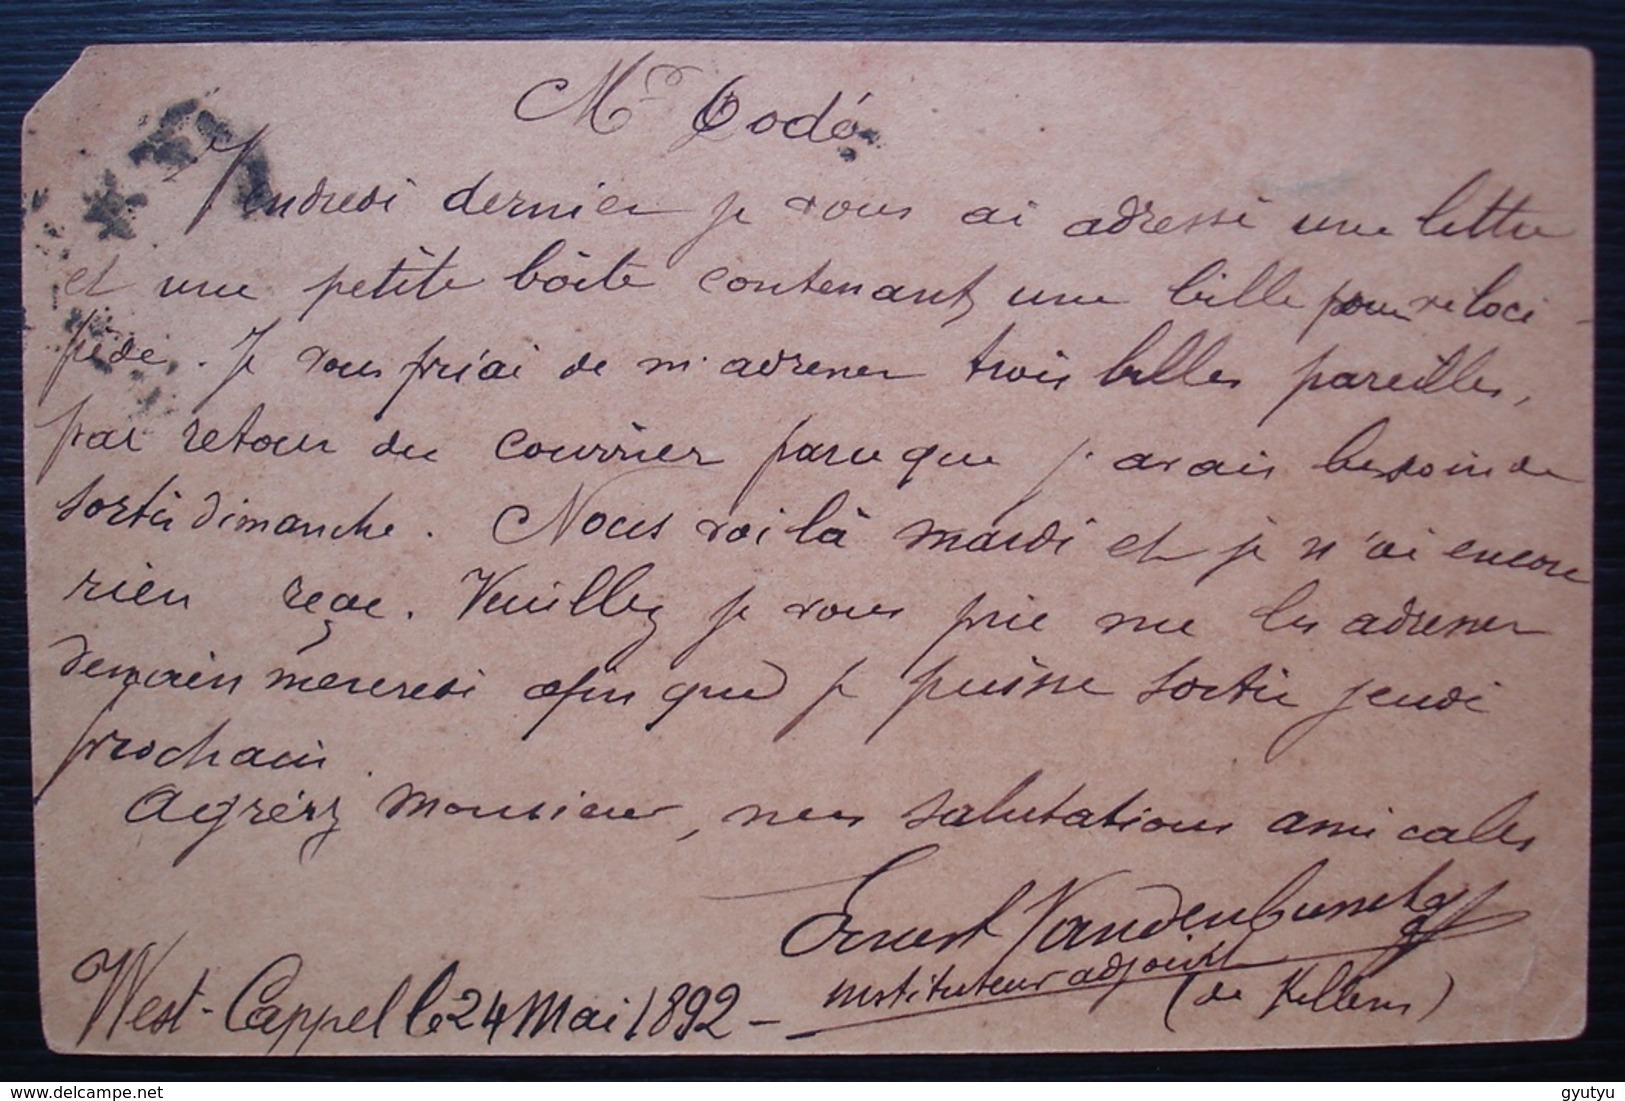 Mr
Vendredi dernier je vous ai adressé une lettre
et une petite bôite contenant une bille pour véloci-
pède. Je vous priai de m'adresser trois billes pareilles,
par retour du courrier parce que j'avais besoin de
sortir dimanche. Nous voilà mardi et je n'ai encore
rien reçu. Veuillez je vous prie me les adresser
demain mercredi afin que je puisse sortir jeudi
prochain.
Agréez Monsieur, mes salutations amicales
Ernest
instituteur adjoint
West-Cappel le 24 Mai 1892 -
(de
gyutyu